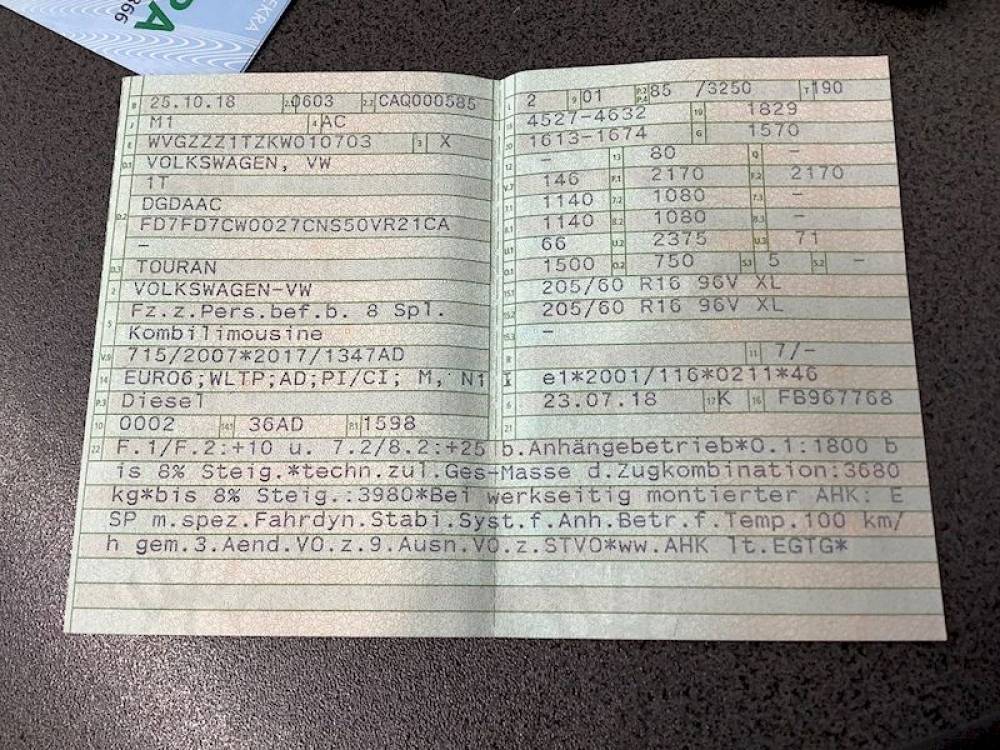 EKRA
866
B 25.10.18 2.1 0603 2.2 CAQ000585
J M1 4 AC
E WVGZZZ1TZKW010703 3 X
D.1 VOLKSWAGEN, VW
1T
DGDAAC
D.2 FD7FD7CW0027CNS50VR21CA
-
D.3 TOURAN
2 VOLKSWAGEN-VW
5 Fz.z.Pers.bef.b. 8 Spl.
Kombilimousine
V.9 715/2007*2017/1347AD
14 EURO6;WLTP;AD;PI/CI; M, N1
P.3 Diesel
10 0002 14.1 36AD P.1 1598
L 2 9 01 P.2 P.4 85 /3250 T 190
18 4527-4632 19 1829
20 1613-1674 G 1570
12 - 13 80 Q -
V.7 146 F.1 2170 F.2 2170
7.1 1140 7.2 1080 7.3 -
8.1 1140 8.2 1080 8.3 -
U.1 66 U.2 2375 U.3 71
O.1 1500 O.2 750 S.1 5 S.2 -
15.1 205/60 R16 96V XL
15.2 205/60 R16 96V XL
15.3 -
R 11 7/-
K e1*2001/116*0211*46
6 23.07.18 17 K 16 FB967768
21
22 F.1/F.2:+10 u. 7.2/8.2:+25 b.Anhängebetrieb*O.1:1800 b
is 8% Steig.*techn.zul.Ges-Masse d.Zugkombination:3680
kg*bis 8% Steig.:3980*Bei werkseitig montierter AHK: E
SP m.spez.Fahrdyn.Stabi.Syst.f.Anh.Betr.f.Temp.100 km/
h gem.3.Aend.VO.z.9.Ausn.VO.z.STVO*ww.AHK lt.EGTG*